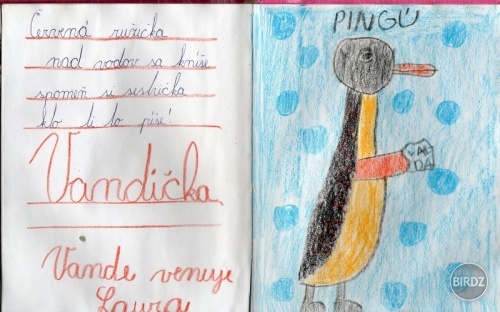 Červená ružička
nad vodov sa kníše
spomeň si sestrička
kto ti to píše!
Vandička
Vande venuje
Laura
PINGÚ
VAN
DA
BIRDZ